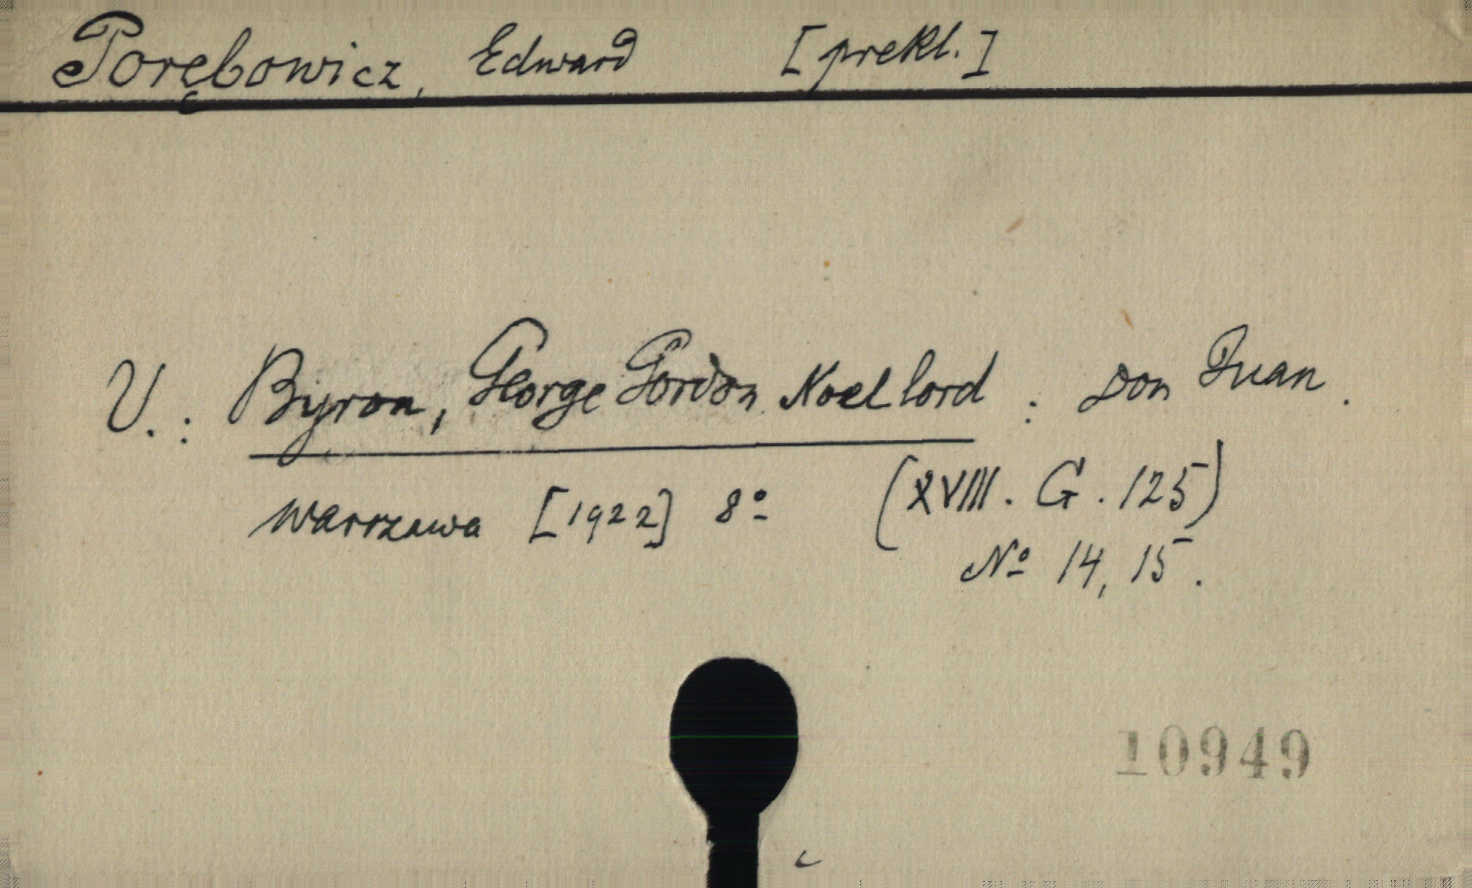 Porębowicz, Edward [prekl.]
V.: Byron, George Gordon Noel lord : Don Juan.
Warszawa [1922] 8º (XVIII. G. 125)
Nº 14, 15.
10949